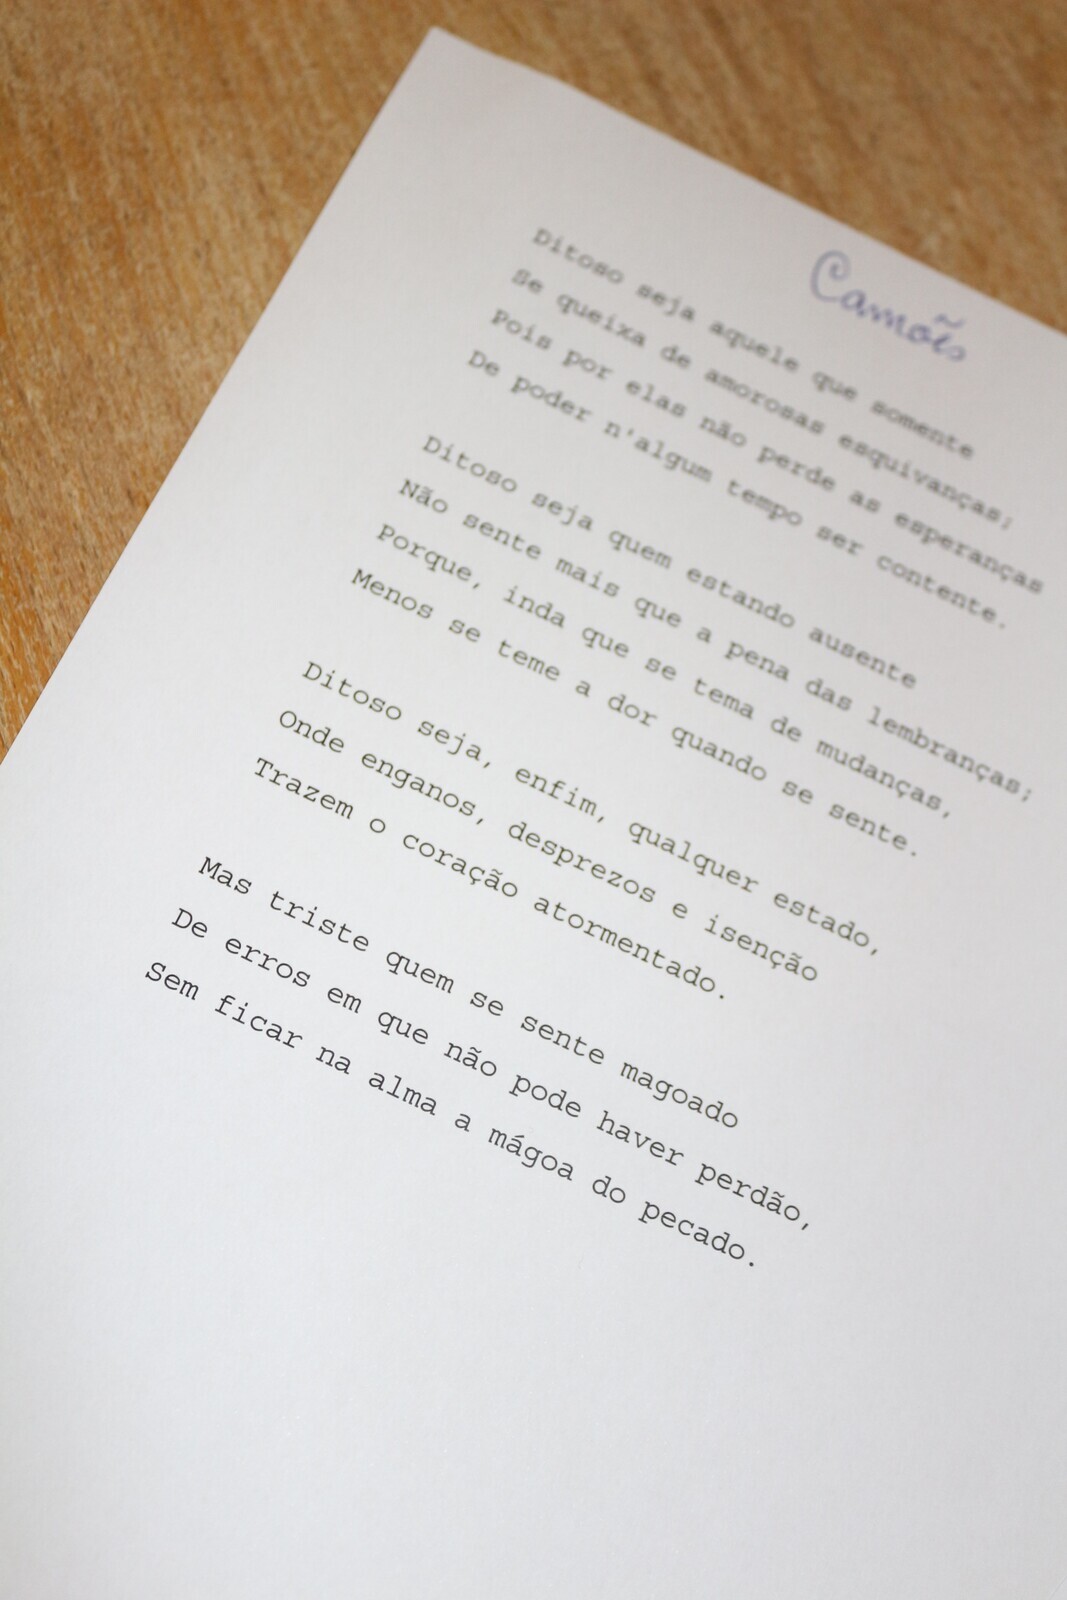 Camões
Ditoso seja aquele que somente
Se queixa de amorosas esquivanças;
Pois por elas não perde as esperanças
De poder n'algum tempo ser contente.
Ditoso seja quem estando ausente
Não sente mais que a pena das lembranças;
Porque, inda que se tema de mudanças,
Menos se teme a dor quando se sente.
Ditoso seja, enfim, qualquer estado,
Onde enganos, desprezos e isenção
Trazem o coração atormentado.
Mas triste quem se sente magoado
De erros em que não pode haver perdão,
Sem ficar na alma a mágoa do pecado.